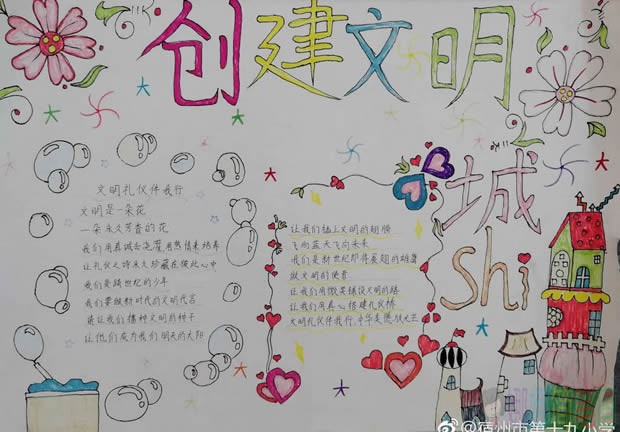 创建文明
城shi
文明礼仪伴我行
文明是一朵花
一朵永久芳香的花
我们用真诚去浇灌用热情来培养
让礼仪之诗永久珍藏在彼此心中
我们是跨世纪的少年
我们要做新时代的文明代言
请让我们播种文明的种子
让他们成为我们明天的太阳
让我们插上文明的翅膀
飞向蓝天飞向未来
我们是新世纪即将展翅的雄鹰
做文明的使者
让我们用微笑铺设文明的路
让我们用真心搭建礼仪桥
文明礼仪伴我行,中华美德
@宿州市第十九小学